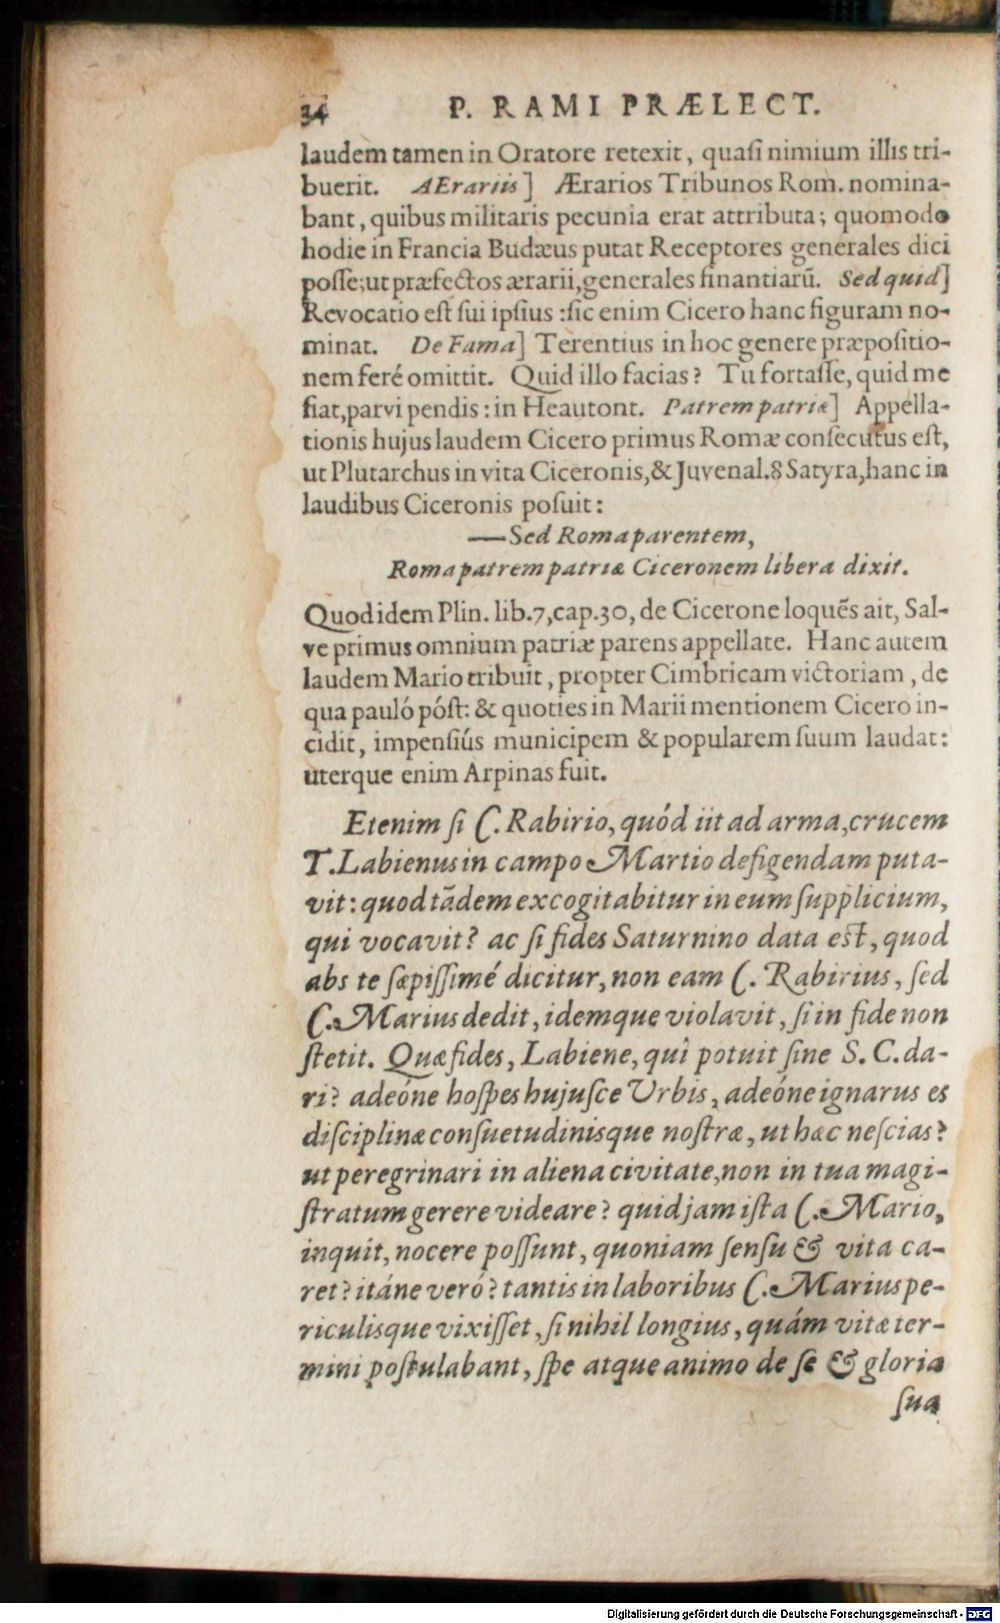 34 P. RAMI PRÆLECT.
laudem tamen in Oratore retexit, quaſi nimium illis tri-
buerit. AErariis] Ærarios Tribunos Rom. nomina-
bant, quibus militaris pecunia erat attributa; quomodo
hodie in Francia Budæus putat Receptores generales dici
poſſe; ut præfectos ærarii, generales finantiarũ. Sed quid]
Revocatio eſt ſui ipſius : ſic enim Cicero hanc figuram no-
minat. De Fama] Terentius in hoc genere præpoſitio-
nem feré omittit. Quid illo facias? Tu fortaſſe, quid me
fiat, parvi pendis : in Heautont. Patrem patriæ] Appella-
tionis hujus laudem Cicero primus Romæ conſecutus eſt,
ut Plutarchus in vita Ciceronis, & Juvenal. 8 Satyra, hanc in
laudibus Ciceronis poſuit :
—Sed Roma parentem,
Roma patrem patriæ Ciceronem libera dixit.
Quod idem Plin. lib. 7, cap. 30, de Cicerone loquẽs ait, Sal-
ve primus omnium patriæ parens appellate. Hanc autem
laudem Mario tribuit, propter Cimbricam victoriam, de
qua pauló póſt: & quoties in Marii mentionem Cicero in-
cidit, impenſiús municipem & popularem ſuum laudat:
uterque enim Arpinas fuit.
Etenim ſi C. Rabirio, quód iit ad arma, crucem
T. Labienus in campo Martio defigendam puta-
vit : quod tãdem excogitabitur in eum ſupplicium,
qui vocavit? ac ſi fides Saturnino data eſt, quod
abs te ſæpiſſimé dicitur, non eam C. Rabirius, ſed
C. Marius dedit, idemque violavit, ſi in fide non
ſtetit. Quæ fides, Labiene, quî potuit ſine S. C. da-
ri? adeóne hoſpes hujuſce Urbis, adeóne ignarus es
diſciplinæ conſuetudinisque noſtræ, ut hæc neſcias?
ut peregrinari in aliena civitate, non in tua magi-
ſtratum gerere videare? quid jam iſta C. Mario,
inquit, nocere poſſunt, quoniam ſenſu & vita ca-
ret? itáne veró? tantis in laboribus C. Marius pe-
riculisque vixiſſet, ſi nihil longius, quám vitæ ter-
mini poſtulabant, ſpe atque animo de ſe & gloria
ſua
Digitalisierung gefördert durch die Deutsche Forschungsgemeinschaft - DFG